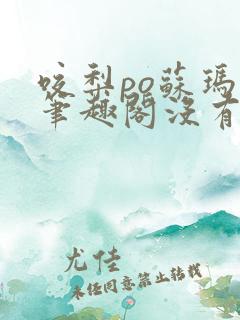 咬梨po蘇瑪
筆趣閣沒有
尤佳
未经同意禁止转载